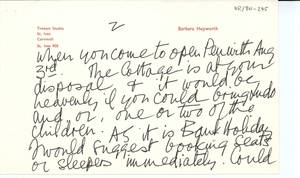 2
Trewyn Studio
St. Ives
Cornwall
Barbara Hepworth
when you come to open Penwith Aug
3rd. The Cottage is at your
disposal & it would be
heavenly if you could bring
and, or, one or two of the
children. As it is Bank Holiday
I would suggest booking seats
or sleepers immediately. Could